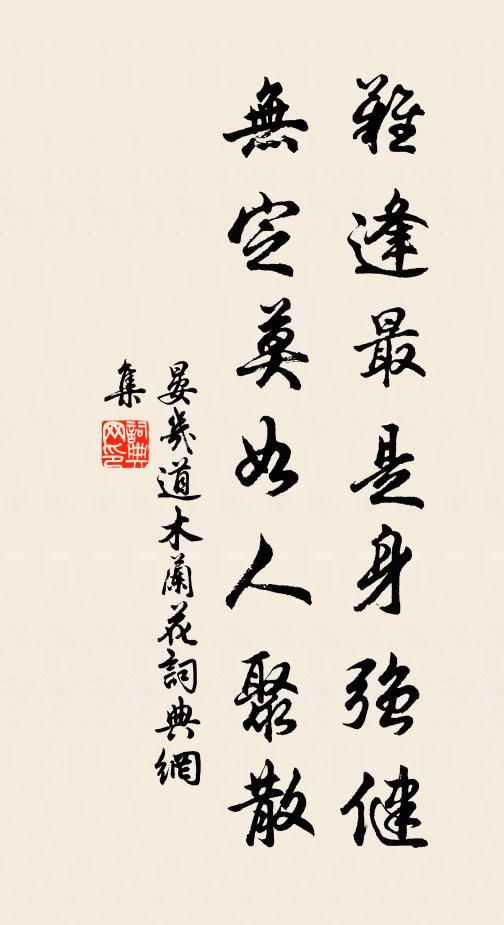 難逢最是身強健
無定莫如人聚散
晏幾道木蘭花詞典網
集
詞典网印